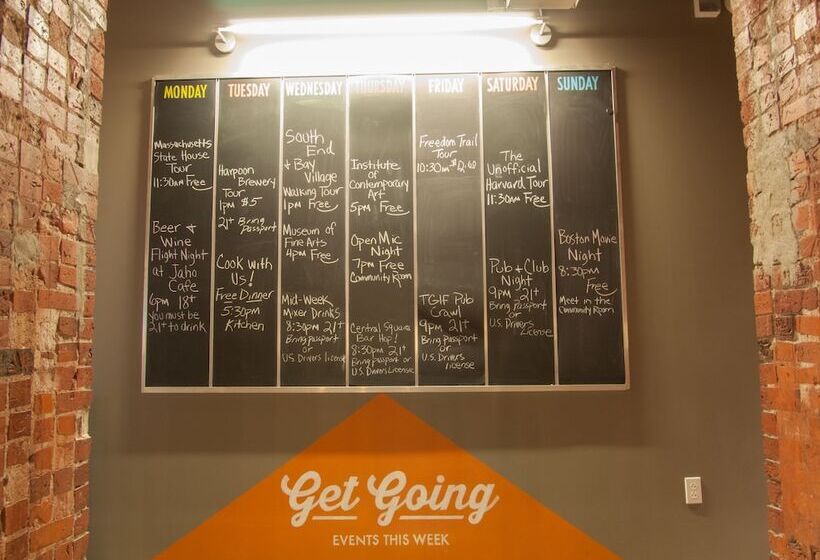 MONDAY
Massachusetts
State House
Tour
11:30am Free
Beer +
Wine
Flight Night
at Jaho
Cafe
6pm 18+
you must be
21+ to drink
TUESDAY
Harpoon
Brewery
Tour
1pm $5
21+ Bring
Passport
Cook with
Us!
Free Dinner
5:30pm
Kitchen
WEDNESDAY
South
End
+ Bay
Village
Walking Tour
1pm Free
Museum of
Fine Arts
4pm Free
Mid-Week
Mixer Drinks
8:30pm 21+
Bring Passport
or
U.S. Drivers license
THURSDAY
Institute
of
Contemporary
Art
5pm Free
Open Mic
Night
7pm Free
Community Room
Central Square
Bar Hop!
8:30pm 21+
Bring Passport
or
U.S. Drivers License
FRIDAY
Freedom Trail
Tour
10:30am
TGIF Pub
Crawl
9pm 21+
Bring Passport
or
U.S. Drivers
license
SATURDAY
The
Unofficial
Harvard Tour
11:30am Free
Pub + Club
Night
9pm 21+
Bring Passport
or
U.S. Drivers
License
SUNDAY
Boston Movie
Night
8:30pm
Free
Meet in the
Community Room
Get Going
EVENTS THIS WEEK